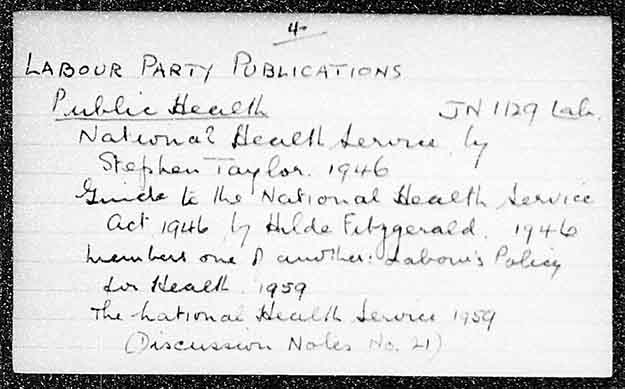 4-
LABOUR PARTY PUBLICATIONS
Public Health JN 1129 Lab.
National Health Service by
Stephen Taylor. 1946
Guide to the National Health Service
Act 1946 by Hilde Fitzgerald. 1946
Members one of another: Labour's Policy
for Health. 1959
The National Health Service 1959
(Discussion Notes No. 21)